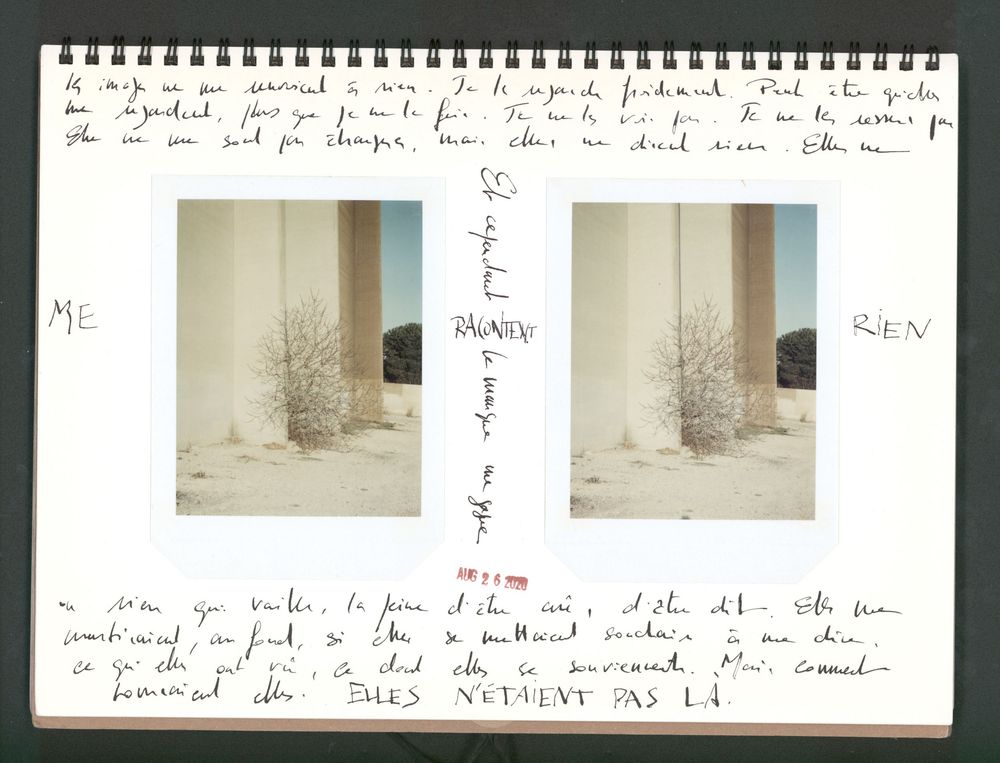 Les images ne me renvoient à rien. Je les regarde froidement. Peut être qu'elles
me regardent, plus que je ne le fais. Je ne les vois pas. Je ne les ressens pas
Elles ne me sont pas étrangères, mais elles ne disent rien. Elles ne
ME RACONTENT RIEN
Et cependant le manque me gagne
AUG 26 2020
ou rien qui vaille, la peine d'être crû, d'être dit. Elles me
mentiraient, au fond, si elles se mettaient soudain à me dire,
ce qu'elles ont vû, ce dont elles se souviennent. Mais comment
elles. ELLES N'ÉTAIENT PAS LÀ.